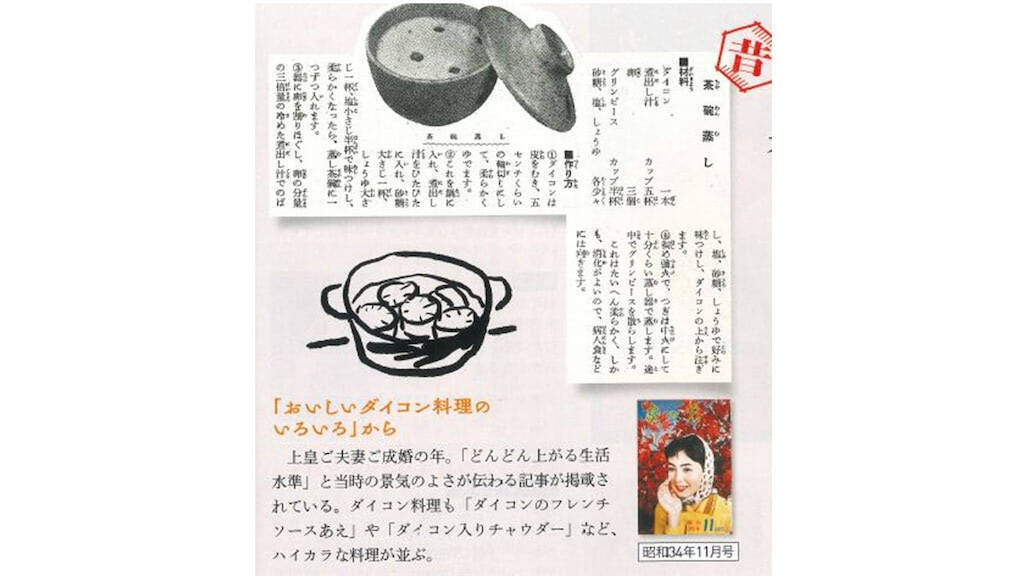 昔
茶碗蒸し
■材料
ダイコン 一本
煮出し汁 カップ五杯
卵 三個
グリンピース カップ半杯
砂糖、塩、しょうゆ 各少々
茶碗蒸し
■作り方
①ダイコンは
皮をむき、五
センチくらい
の輪切りにし
て、柔らかく
ゆでます。
②これを鍋に
入れ、煮出し
汁をひたひた
に入れ、砂糖
大さじ一杯、
しょうゆ大さ
じ一杯、塩小さじ半杯で味つけし、
柔らかくなったら、蒸し茶碗に一
つずつ入れます。
③器に卵を割りほぐし、卵の分量
の三倍量の冷めた煮出し汁でのば
し、塩、砂糖、しょうゆで好みに
味つけし、ダイコンの上から注ぎ
ます。
④初め強火で、つぎは中火にして
十分くらい蒸し器で蒸します。途
中でグリンピースを散らします。
これはたいへん柔らかく、しか
も、消化がよいので、病人食など
には向きます。
「おいしいダイコン料理の
いろいろ」から
上皇ご夫妻ご成婚の年。「どんどん上がる生活
水準」と当時の景気のよさが伝わる記事が掲載さ
れている。ダイコン料理も「ダイコンのフレンチ
ソースあえ」や「ダイコン入りチャウダー」など、
ハイカラな料理が並ぶ。
11
昭和34年11月号